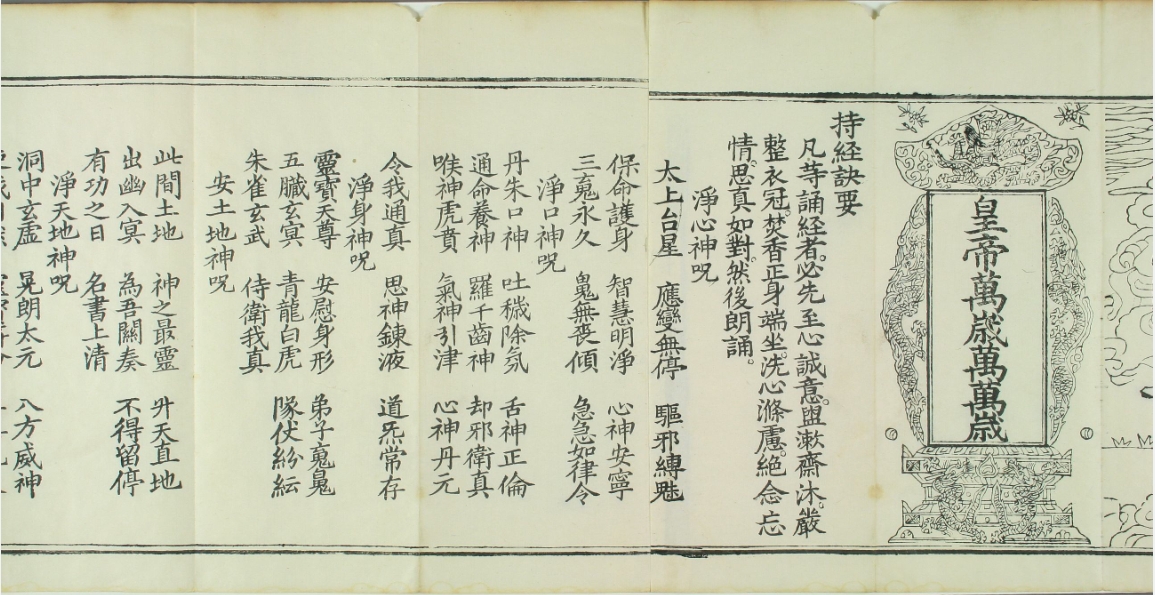 皇帝萬歲萬萬歲
持經訣要
凡等誦經者。必先至心誠意。盥漱齋沐。嚴
整衣冠。焚香正身端坐。洗心滌慮。絕念忘
情。思真如對。然後朗誦。
淨心神呪
太上台星 應變無停 驅邪縛魅
保命護身 智慧明淨 心神安寧
三䰟永久 䰟無喪傾 急急如律令
淨口神呪
丹朱口神 吐穢除氛 舌神正倫
通命養神 羅千齒神 却邪衛真
喉神虎賁 氣神引津 心神丹元
令我通真 思神鍊液 道炁常存
淨身神呪
靈寶天尊 安慰身形 弟子䰟䰟
五臟玄冥 青龍白虎 隊仗紛紜
朱雀玄武 侍衛我真
安土地神呪
此間土地 神之最靈 升天直地
出幽入冥 為吾關奏 不得留停
有功之日 名書上清
淨天地神呪
洞中玄虛 晃朗太元
八方威神